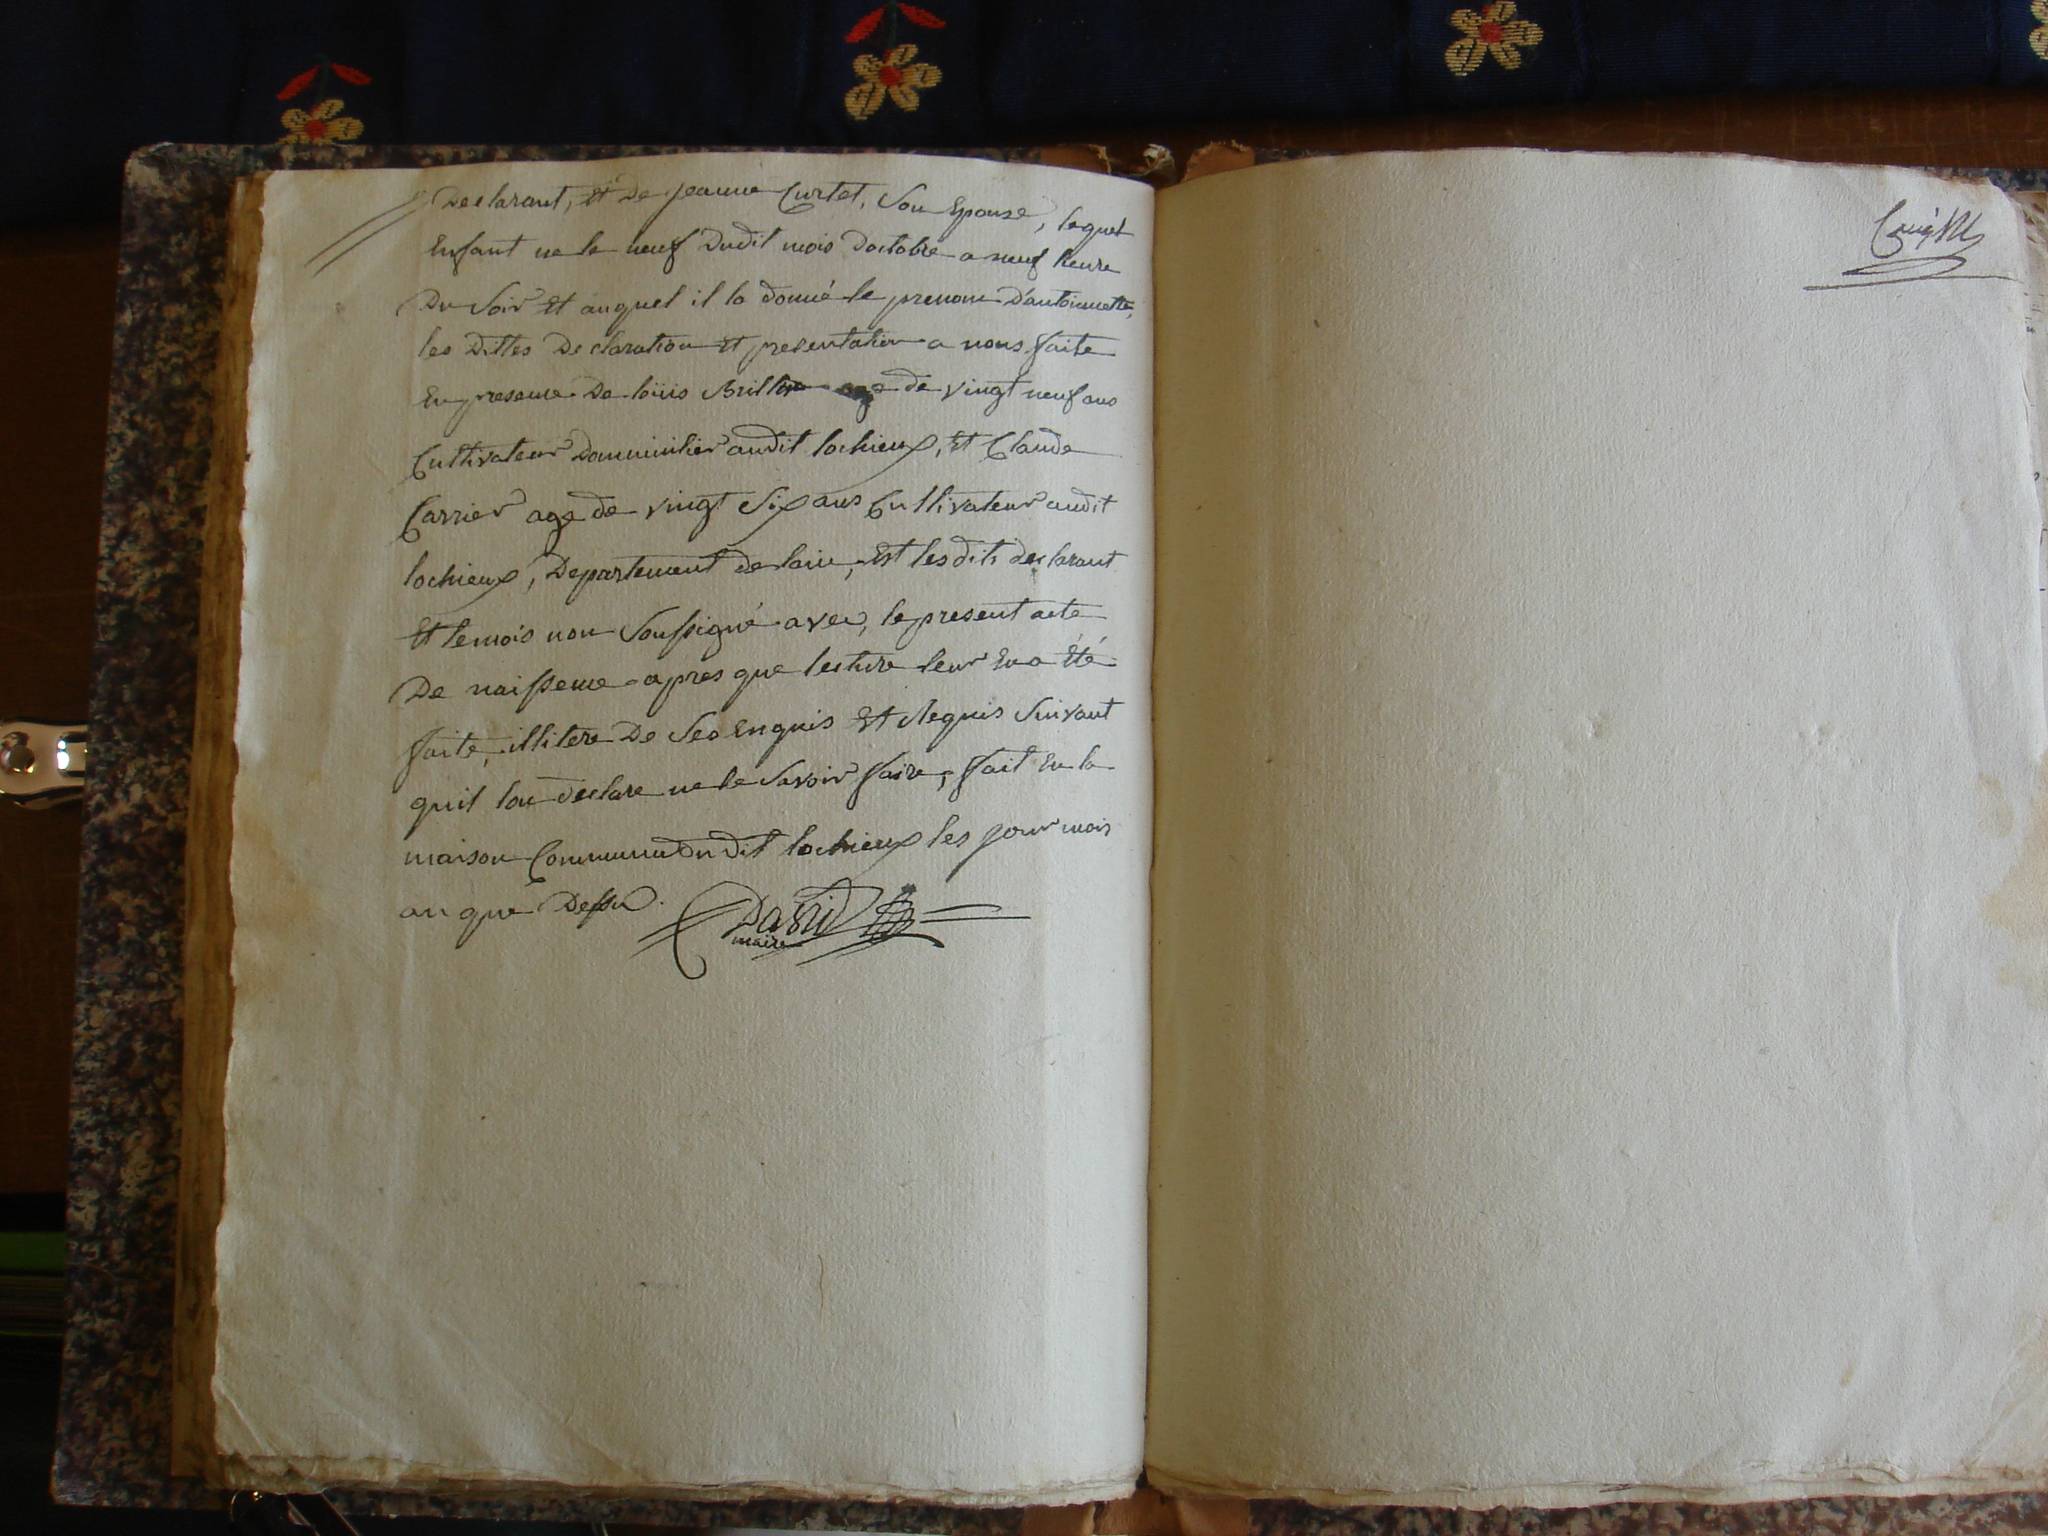 Declarant, et De jeanne Curtet, Son Epouse, lequel
Enfant ne le neuf Dudit mois Doctobre a neuf heure
Du Soir Et auquel il la donné le prenom D'antoinette,
les Dittes Declaration Et presentation a nous faite
En presence De loüis Brillion age de vingt neuf ans
Cultivateur Dommicilier audit lochieux, Et Claude
Carrier age de vingt Six ans Cultivateur audit
lochieux, Departement de lain, Et les dits declarant
Et temois non Soussigné avec, le present acte
De naissence apres que lecture leur En a Eté
faite, illitere De Ses Enquis Et Requis Suivant
quil lon declare ne le Savoir faire, fait En la
maison Commune du dit lochieux les jour mois
an que Dessu.
David
maire